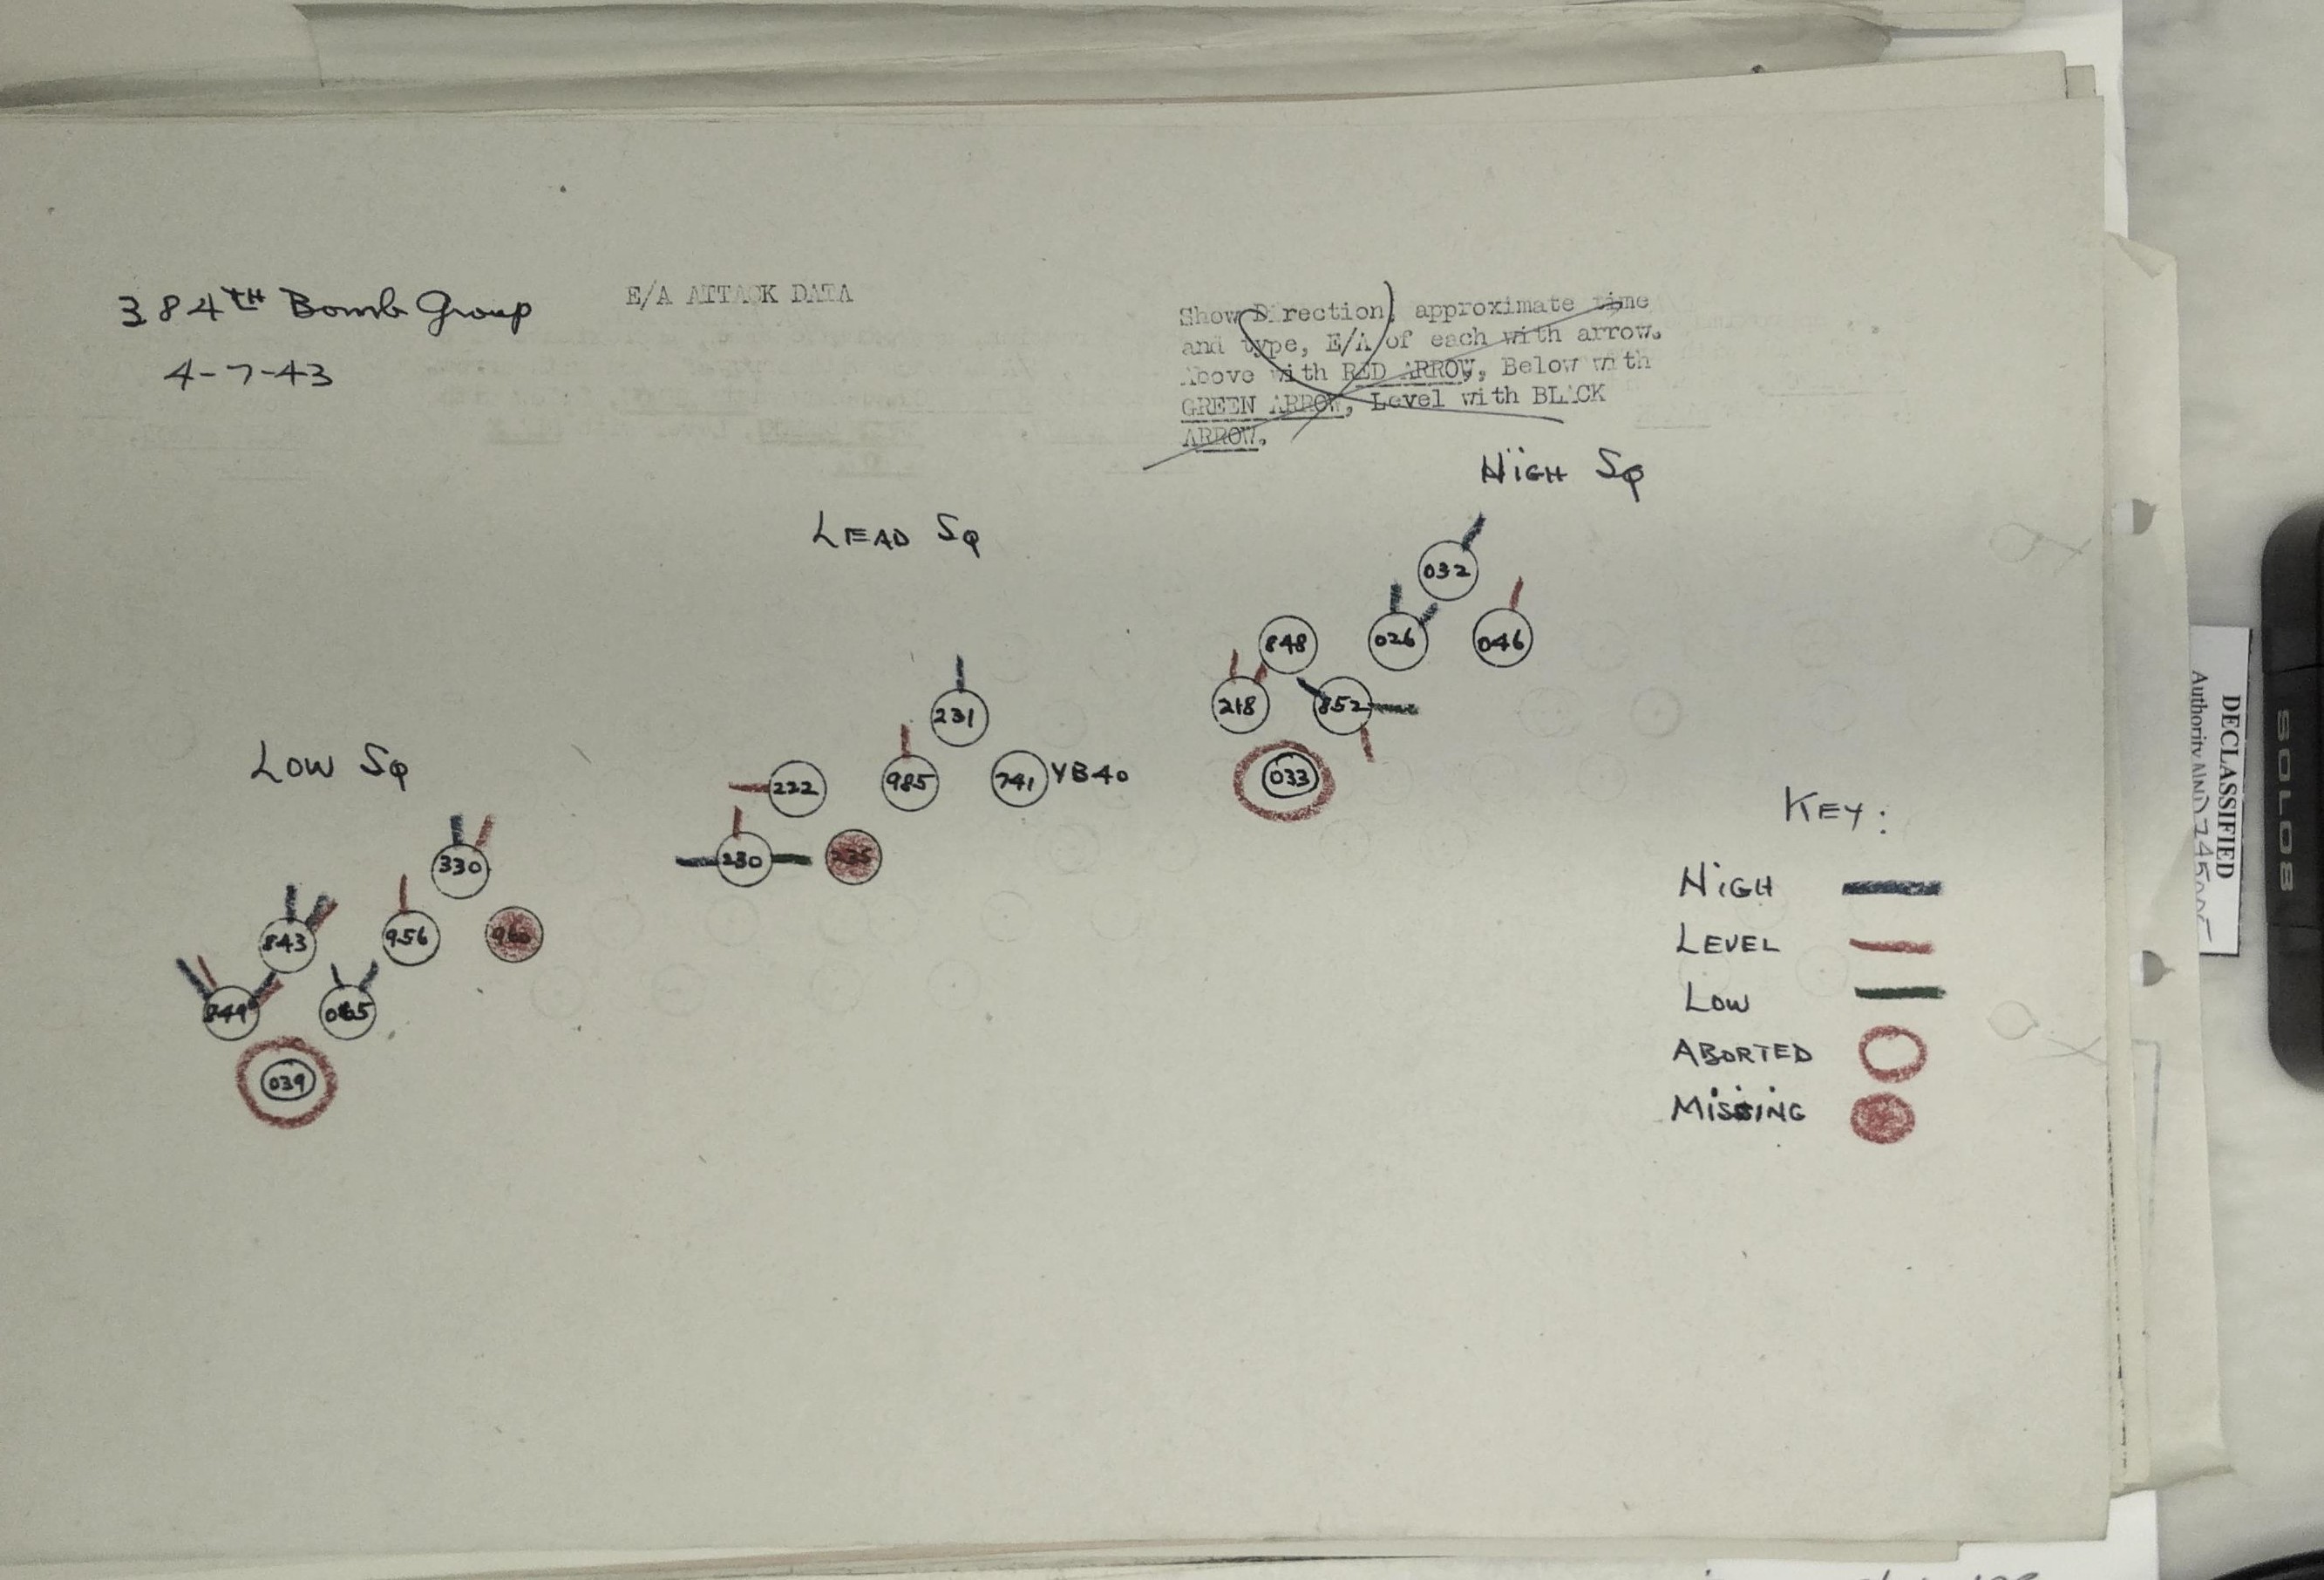 384TH Bomb Group
4-7-43
E/A ATTACK DATA
Show Direction, approximate time
and type, E/A of each with arrow.
Above with RED ARROW, Below with
GREEN ARROW, Level with BLACK
ARROW.
HIGH SQ
032
026
046
848
218
852
033
LEAD SQ
231
985
741 YB40
222
230
235
LOW SQ
330
956
960
843
849
065
039
KEY:
HIGH
LEVEL
LOW
ABORTED
MISSING
DECLASSIFIED
Authority NND 745005
SOLO8